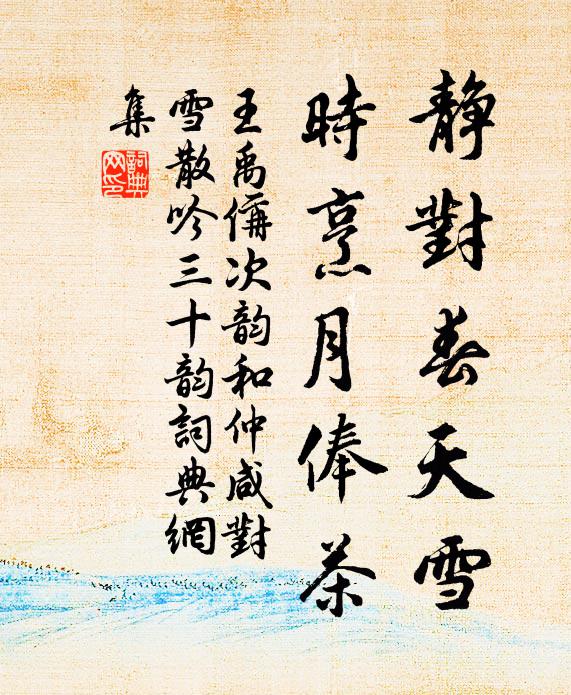 靜對春天雪
時烹月俸茶
王禹偁次韵和仲咸對
雪散吟三十韵詞典網
集
詞典網印